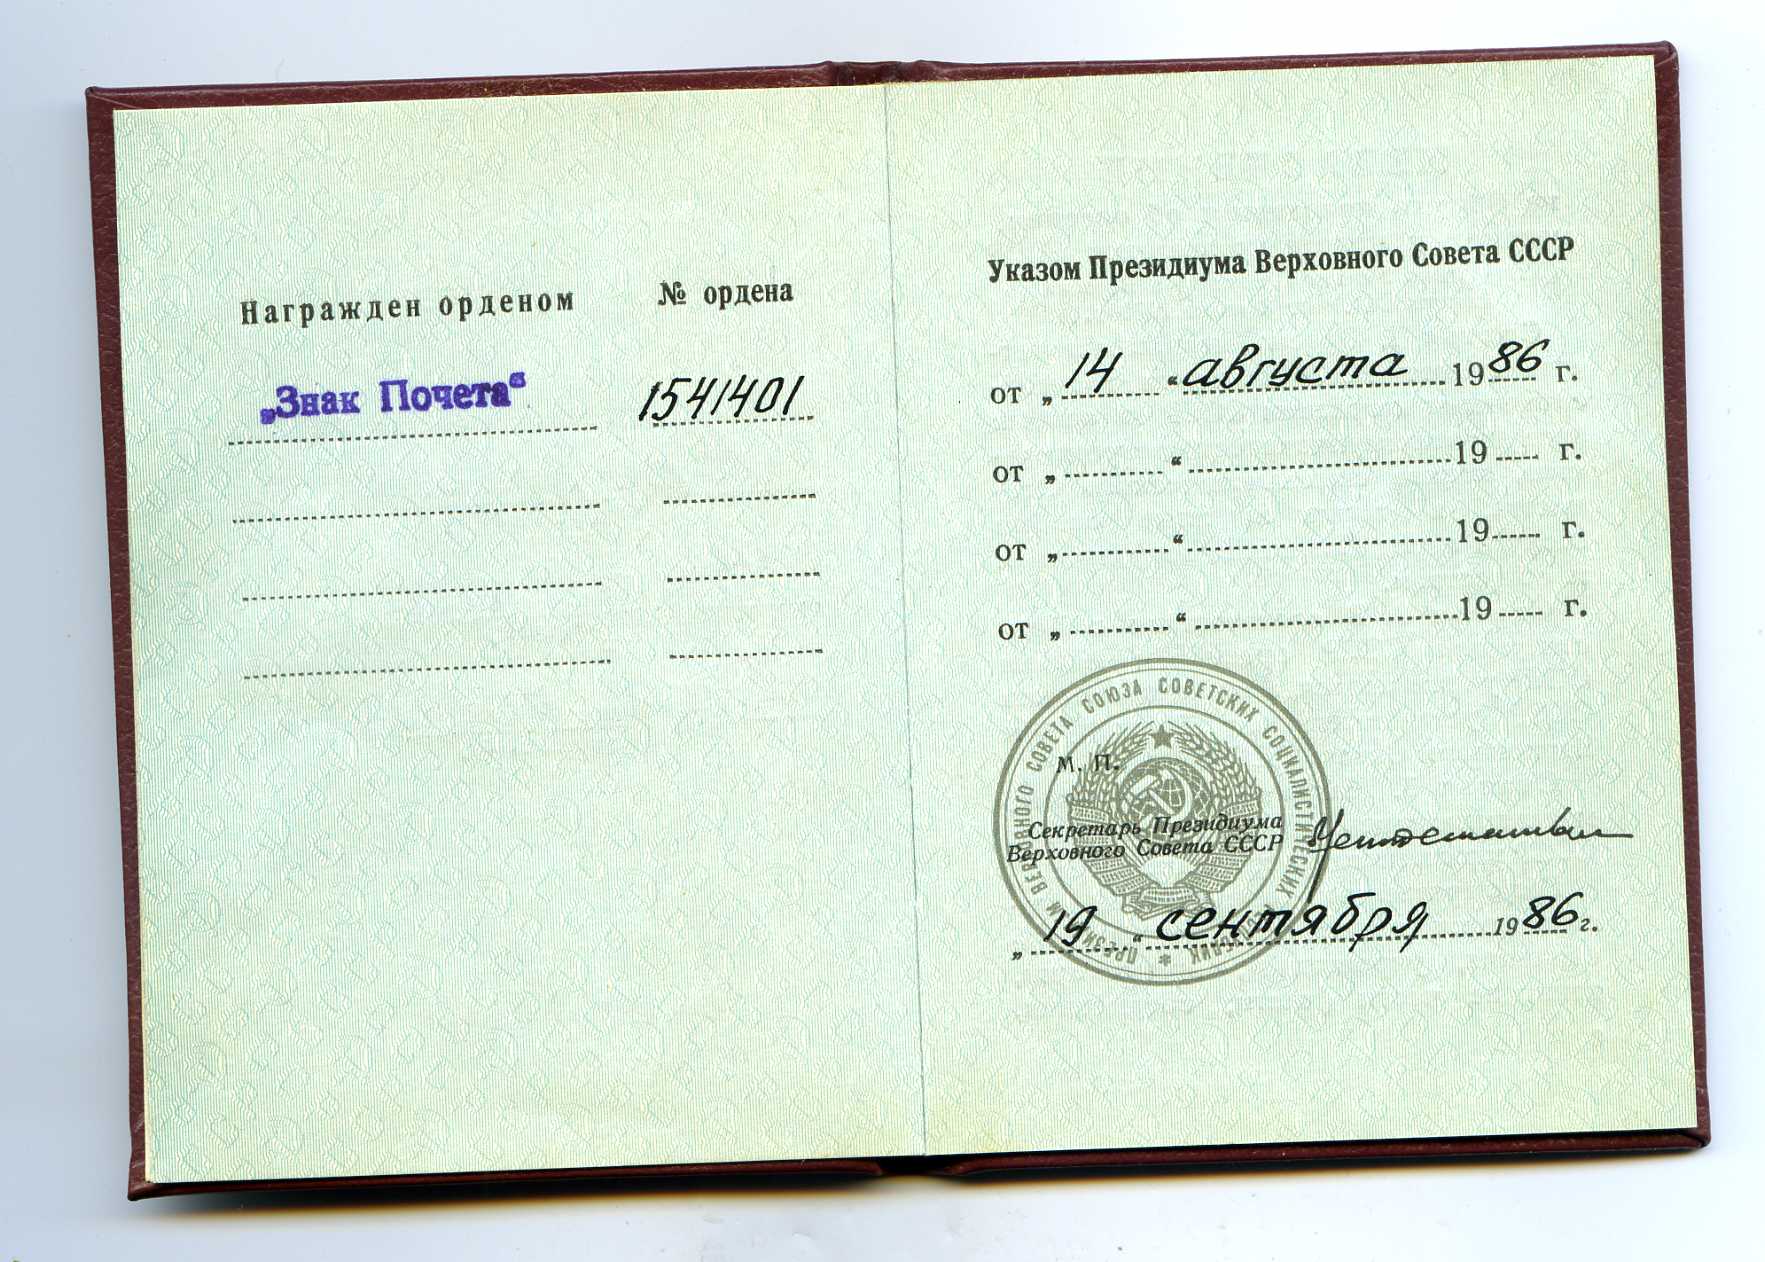 Награжден орденом
№ ордена
„Знак Почета“
1541401
Указом Президиума Верховного Совета СССР
от „ 14 “ августа 1986 г.
от „ “ 19 г.
от „ “ 19 г.
от „ “ 19 г.
ПРЕЗИДИУМ ВЕРХОВНОГО СОВЕТА СОЮЗА СОВЕТСКИХ СОЦИАЛИСТИЧЕСКИХ РЕСПУБЛИК *
М. П.
Секретарь Президиума
Верховного Совета СССР
„ 19 “ сентября 1986 г.